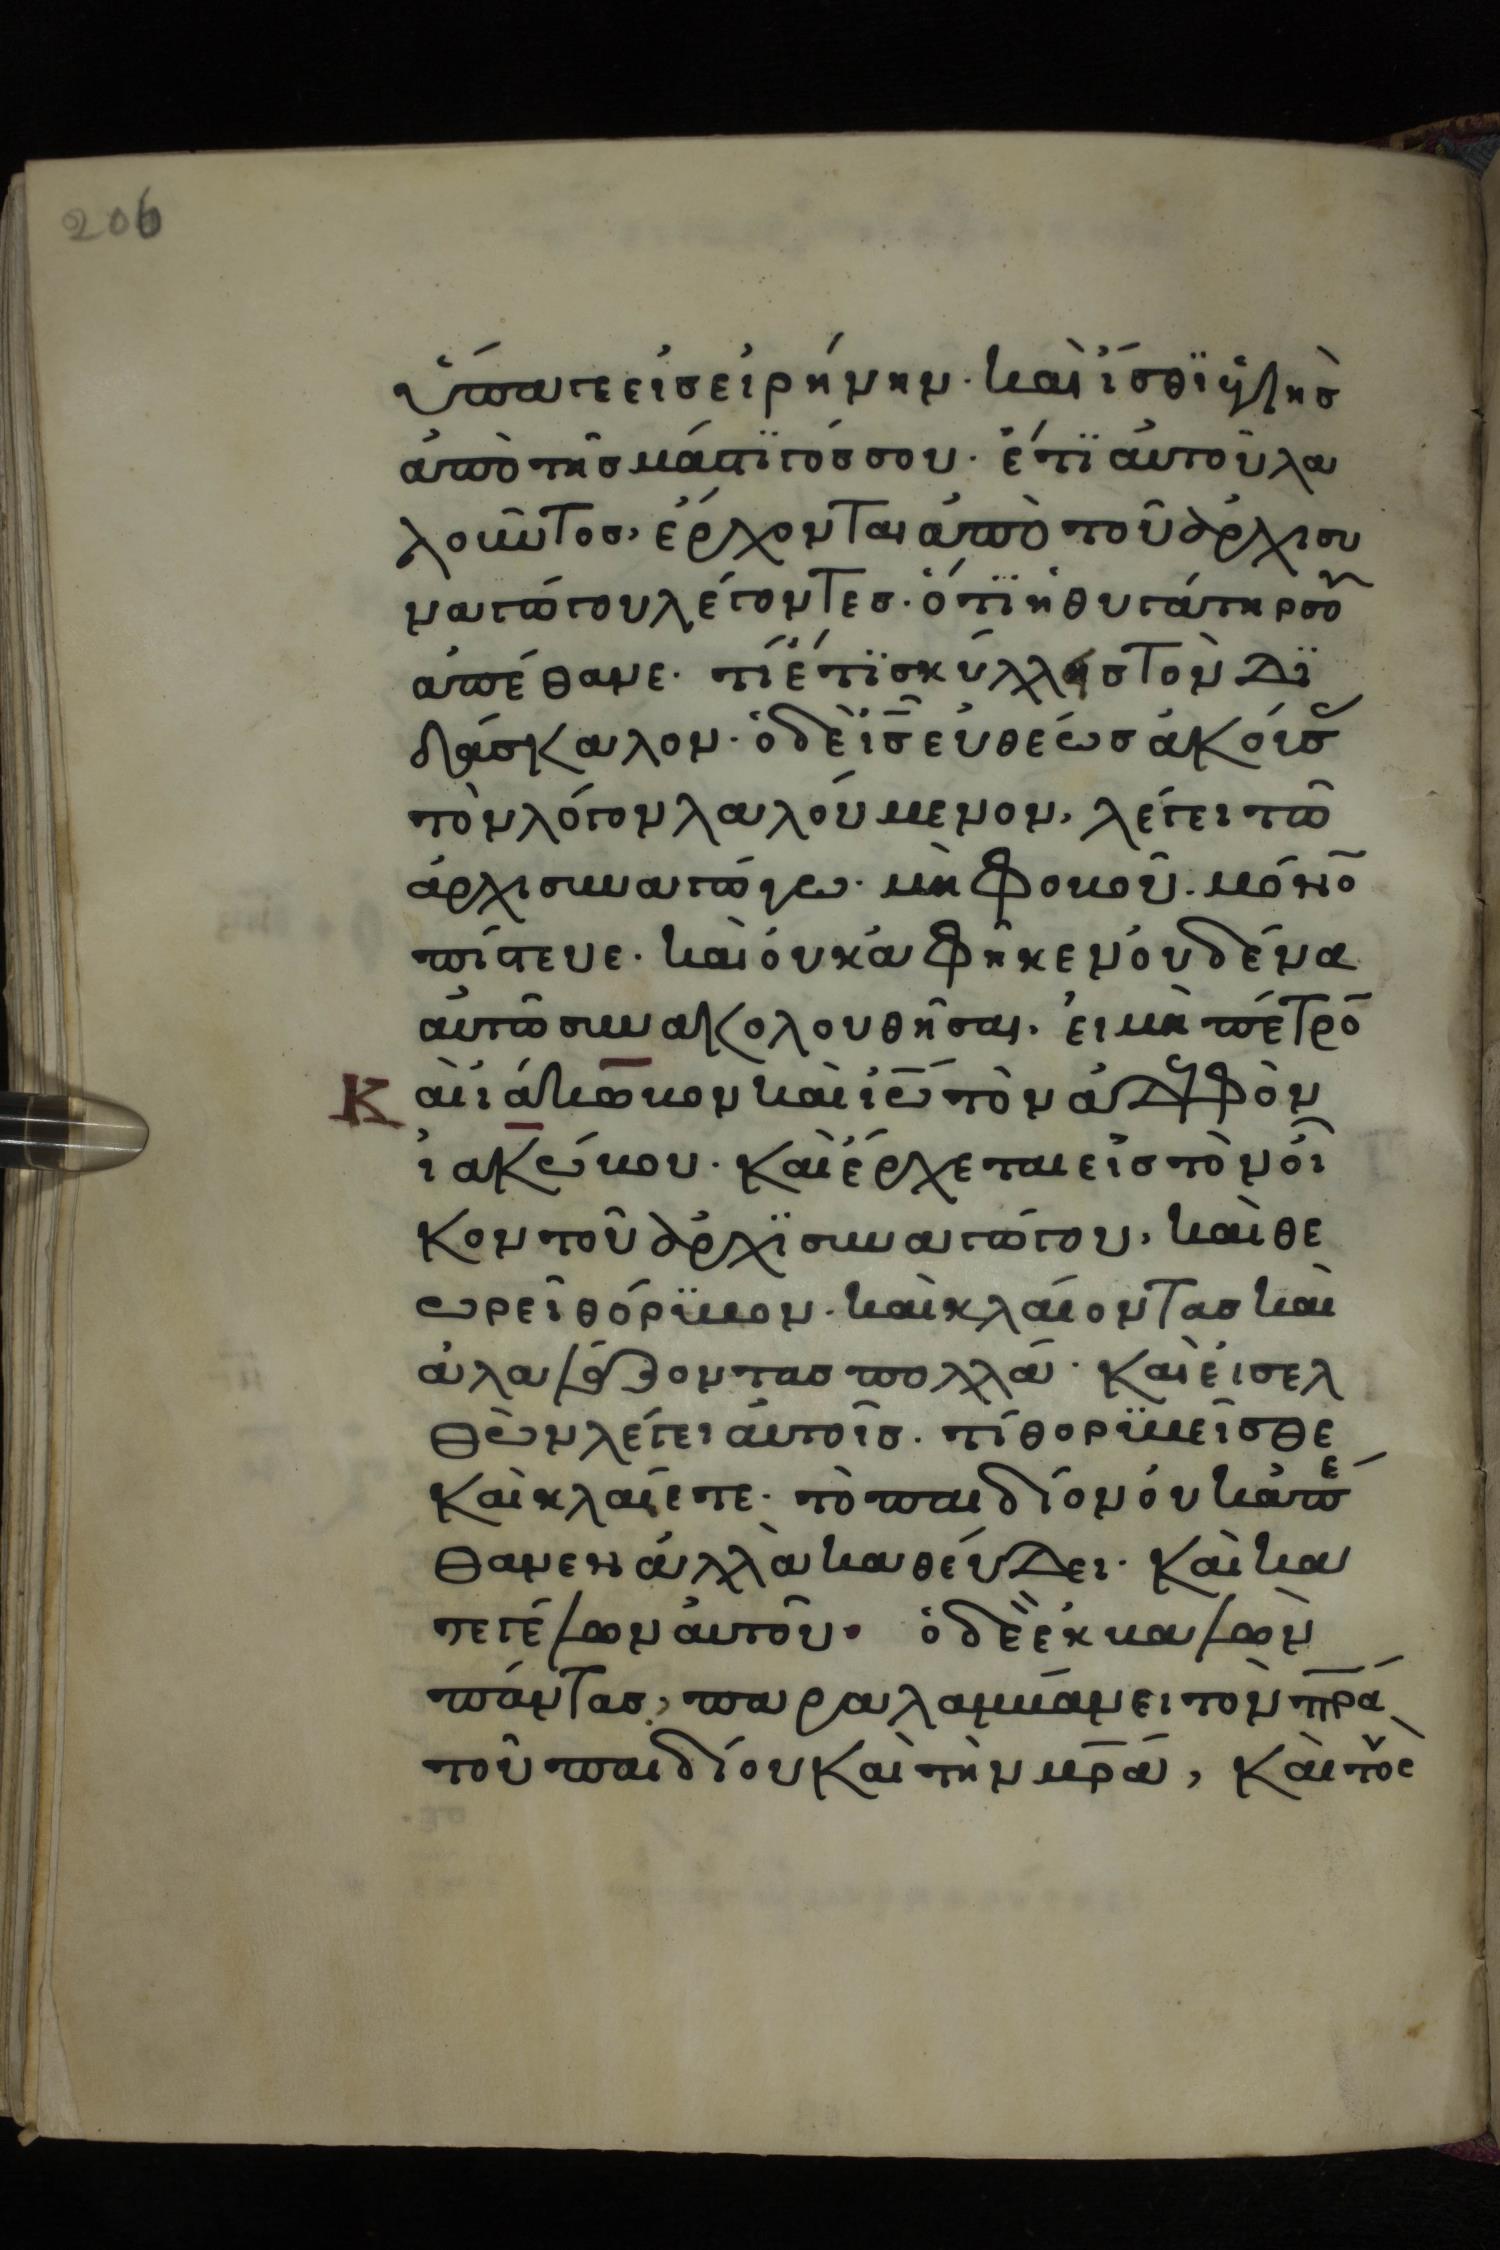 206
ὕπαγε εἰς εἰρήνην· καὶ ἴσθϊ ὑγιὴς
ἀπὸ τῆς μάστϊγός σου· ἔτϊ αὐτοῦ λα
λοῦντος, ἔρχονται ἀπὸ τοῦ ἀρχισυ
ναγώγου λέγοντες· ὅτϊ ἡ θυγάτηρ σου
ἀπέθανε· τί ἔτϊ σκύλλης τὸν δϊ
δάσκαλον· ὁ δὲ ἰς εὐθέως ἀκούσας
τὸν λόγον λαλούμενον, λέγει τῶ
ἀρχισυναγώγω· μὴ φοβοῦ· μόνον
πίστευε· καὶ οὐκ ἀφῆκεν οὐδένα
αὐτῶ συνακολουθῆσαι· εἰ μὴ πέτρον
Καὶ ἰάκωβον καὶ ἰω τὸν ἀδελφὸν
ἰακώβου· καὶ ἔρχεται εἰς τὸν οἶ
κον τοῦ ἀρχϊσυναγώγου, καὶ θε
ωρεῖ θόρϋβον· καὶ κλαίοντας καὶ
ἀλαλάζοντας πολλά· καὶ εἰσελ
θὼν λέγει αὐτοῖς· τί θορϋβεῖσθε
καὶ κλαίετε· τὸ παιδίον οὐκ ἀπέ
θανεν ἀλλὰ καθεύδει· καὶ κα
τεγέλων αὐτοῦ· ὁ δὲ ἐκβαλὼν
πάντας, παραλαμβάνει τὸν πρα
τοῦ παιδίου καὶ τὴν μρα, καὶ τοὺς